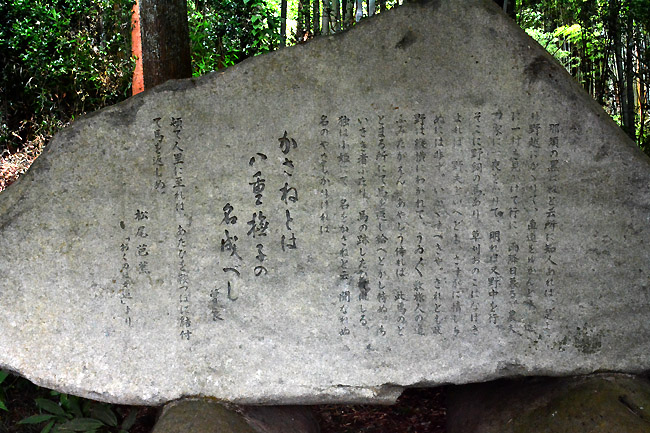 那須の黒ばねと云所に知人あれば、是より
野越にかゝりて、直道をゆかんとす。遥
に一村を見かけて行に、雨降日暮る。農夫
の家に一夜をかりて、明れば又野中を行。
そこに野飼の馬あり。草刈おのこになげき
よれば、野夫といへどもさすがに情しら
ぬには非ず。いかゞすべきや、されども此
野は縦横にわかれて、うゐ〱敷旅人の道
ふみたがえん、あやしう侍れば、此馬のと
どまる所にて馬を返し給へとかし侍ぬ。ち
いさき者ふたり、馬の跡したひて走る。
独は小姫にて、名をかさねと云。聞なれぬ
名のやさしかりければ
かさねとは
八重撫子の
名成べし
曽良
頓て人里に至れば、あたひを鞍つぼに結付
て馬を返しぬ。
松尾芭蕉
「おくのほそ道」より